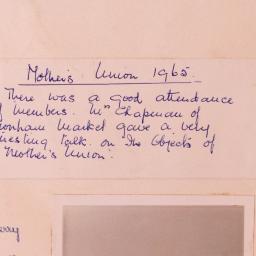 Mother's Union 1965.
There was a good attendance
of members. Mrs Chapman of
onham Market gave a very
resting talk on the Objects of
"Mother's Union".
erry